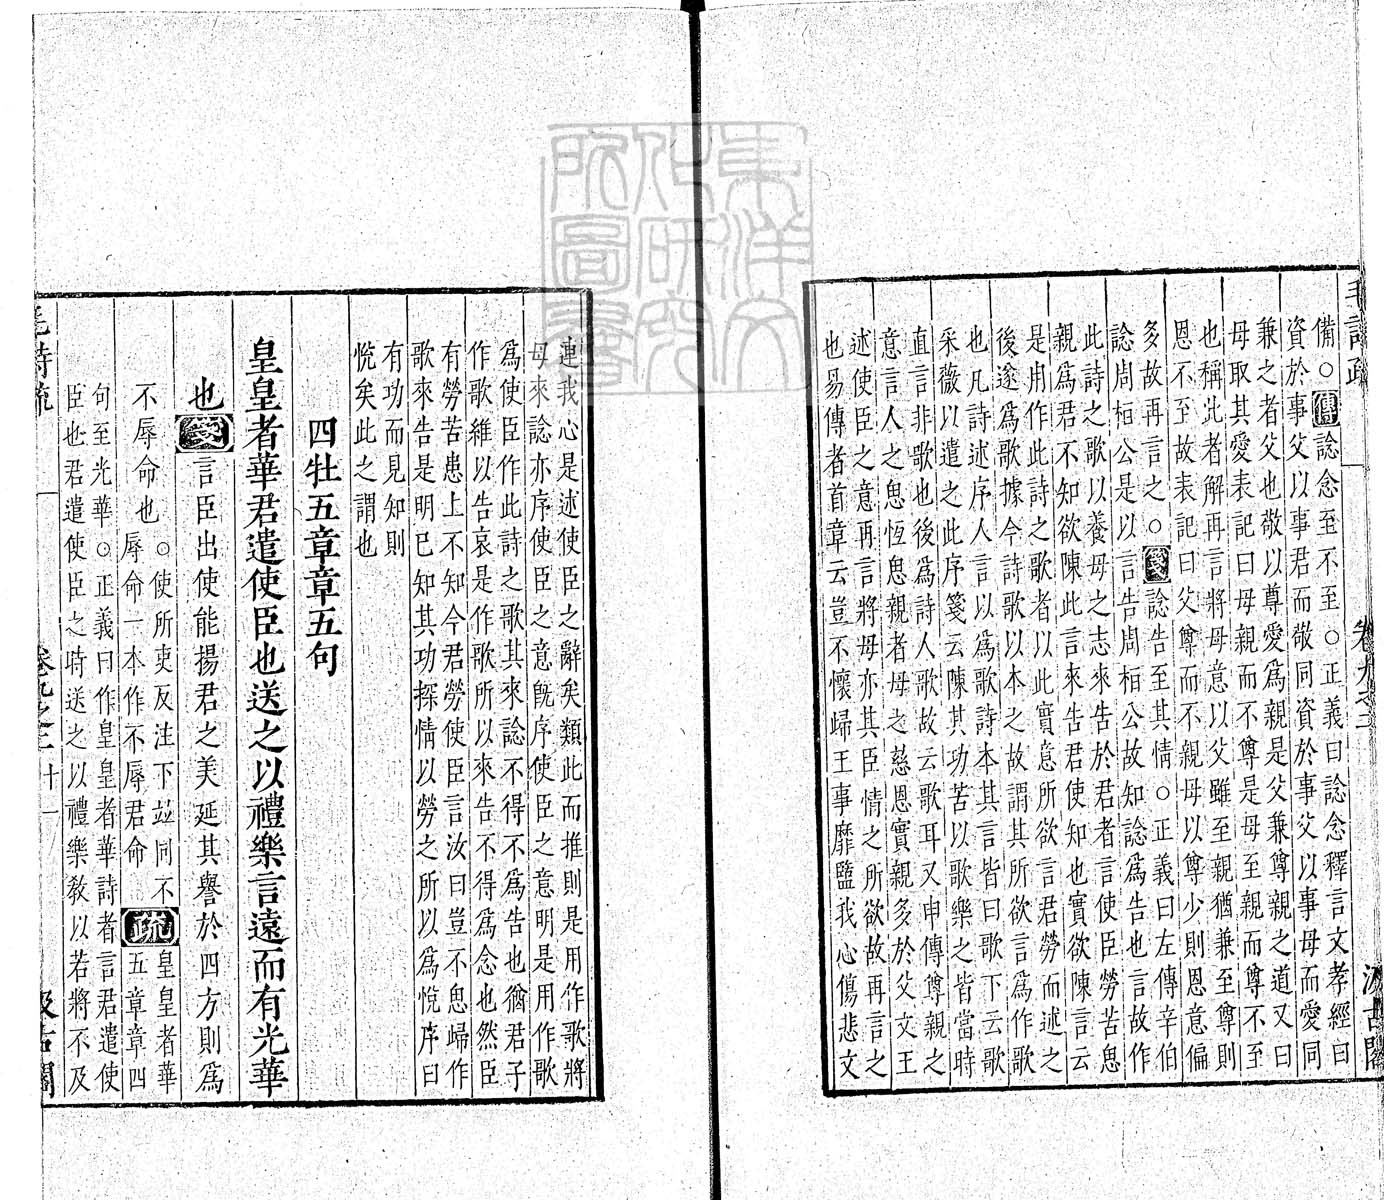 毛詩疏
卷九之二
汲古閣
備○傳諗念至不至○正義曰諗念釋言文孝經曰
資於事父以事君而敬同資於事父以事母而愛同
兼之者父也敬以尊愛爲親是父兼尊親之道又曰
母取其愛表記曰母親而不尊是母至親而尊不至
也稱此者解再言將母意以父雖至親猶兼至尊則
恩不至故表記曰父尊而不親母以尊少則恩意偏
多故再言之○箋諗告至其情○正義曰左傳辛伯
諗周桓公是以言告周桓公故知諗爲告也言故作
此詩之歌以養母之志來告於君者言使臣勞苦思
親爲君不知欲陳此言來告君使知也實欲陳言云
是用作此詩之歌者以此實意所欲言君勞而述之
後遂爲歌據今詩歌以本之故謂其所欲言爲作歌
也凡詩述序人言以爲歌詩本其言皆曰歌下云歌
采薇以遣之此序箋云陳其功苦以歌樂之皆當時
直言非歌也後爲詩人歌故云歌耳又申傳尊親之
意言人之思恆思親者母之慈恩實親多於父文王
述使臣之意再言將母亦其臣情之所欲故再言之
也易傳者首章云豈不懷歸王事靡盬我心傷悲文
連我心是述使臣之辭矣類此而推則是用作歌將
母來諗亦序使臣之意旣序使臣之意明是用作歌
爲使臣作此詩之歌其來諗不得不爲告也猶君子
作歌維以告哀是作歌所以來告不得爲念也然臣
有勞苦患上不知今君勞使臣言汝曰豈不思歸作
歌來告是明已知其功探情以勞之所以爲悅序曰
有功而見知則
悅矣此之謂也
四牡五章章五句
皇皇者華君遣使臣也送之以禮樂言遠而有光華
也箋言臣出使能揚君之美延其譽於四方則爲
不辱命也○使所吏反注下玆同不
辱命一本作不辱君命疏皇皇者華
五章章四
句至光華○正義曰作皇皇者華詩者言君遣使
臣也君遣使臣之時送之以禮樂敎以若將不及
毛詩疏
卷九之二
十一
汲古閣